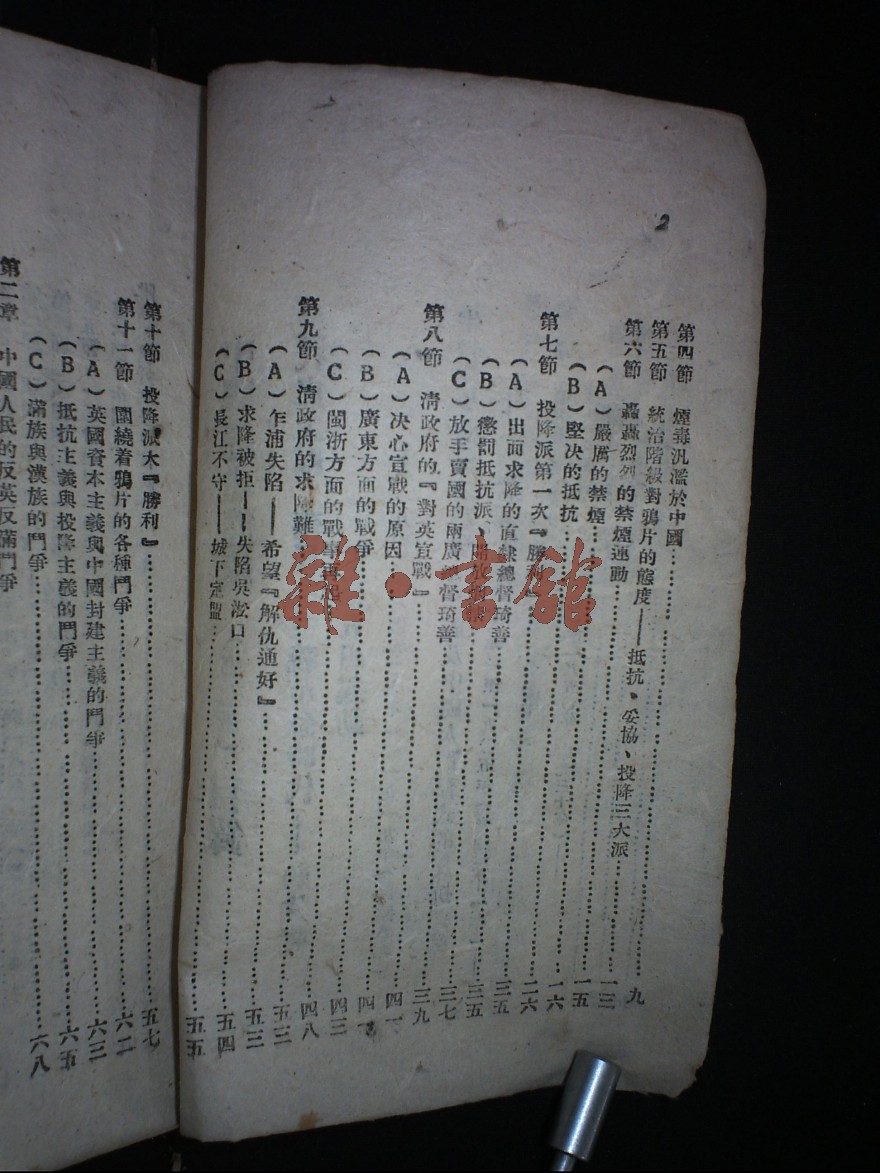 2
第四節 煙毒汎濫於中國……九
第五節 統治階級對鴉片的態度——抵抗、妥協、投降三大派……一三
第六節 轟轟烈烈的禁煙運動……一五
(A)嚴厲的禁煙……一六
(B)堅决的抵抗……二六
第七節 投降派第一次『勝利』……三五
(A)出面求降的直隸總督琦善……三五
(B)懲罰抵抗派、開放……三七
(C)放手賣國的兩廣總督琦善……三九
第八節 清政府的『對英宣戰』……四一
(A)决心宣戰的原因……四
(B)廣東方面的戰爭……四三
(C)閩浙方面的戰事……四八
第九節 清政府的求降難……五三
(A)乍浦失陷——希望『解仇通好』……五三
(B)求降被拒——失陷吳淞口……五四
(C)長江不守——城下定盟……五五
第十節 投降派大『勝利』……五七
第十一節 圍繞着鴉片的各種鬥爭……六二
(A)英國資本主義與中國封建主義的鬥爭……六三
(B)抵抗主義與投降主義的鬥爭……六五
(C)滿族與漢族的鬥爭……六八
第二章 中國人民的反英反滿鬥爭
雜·書館